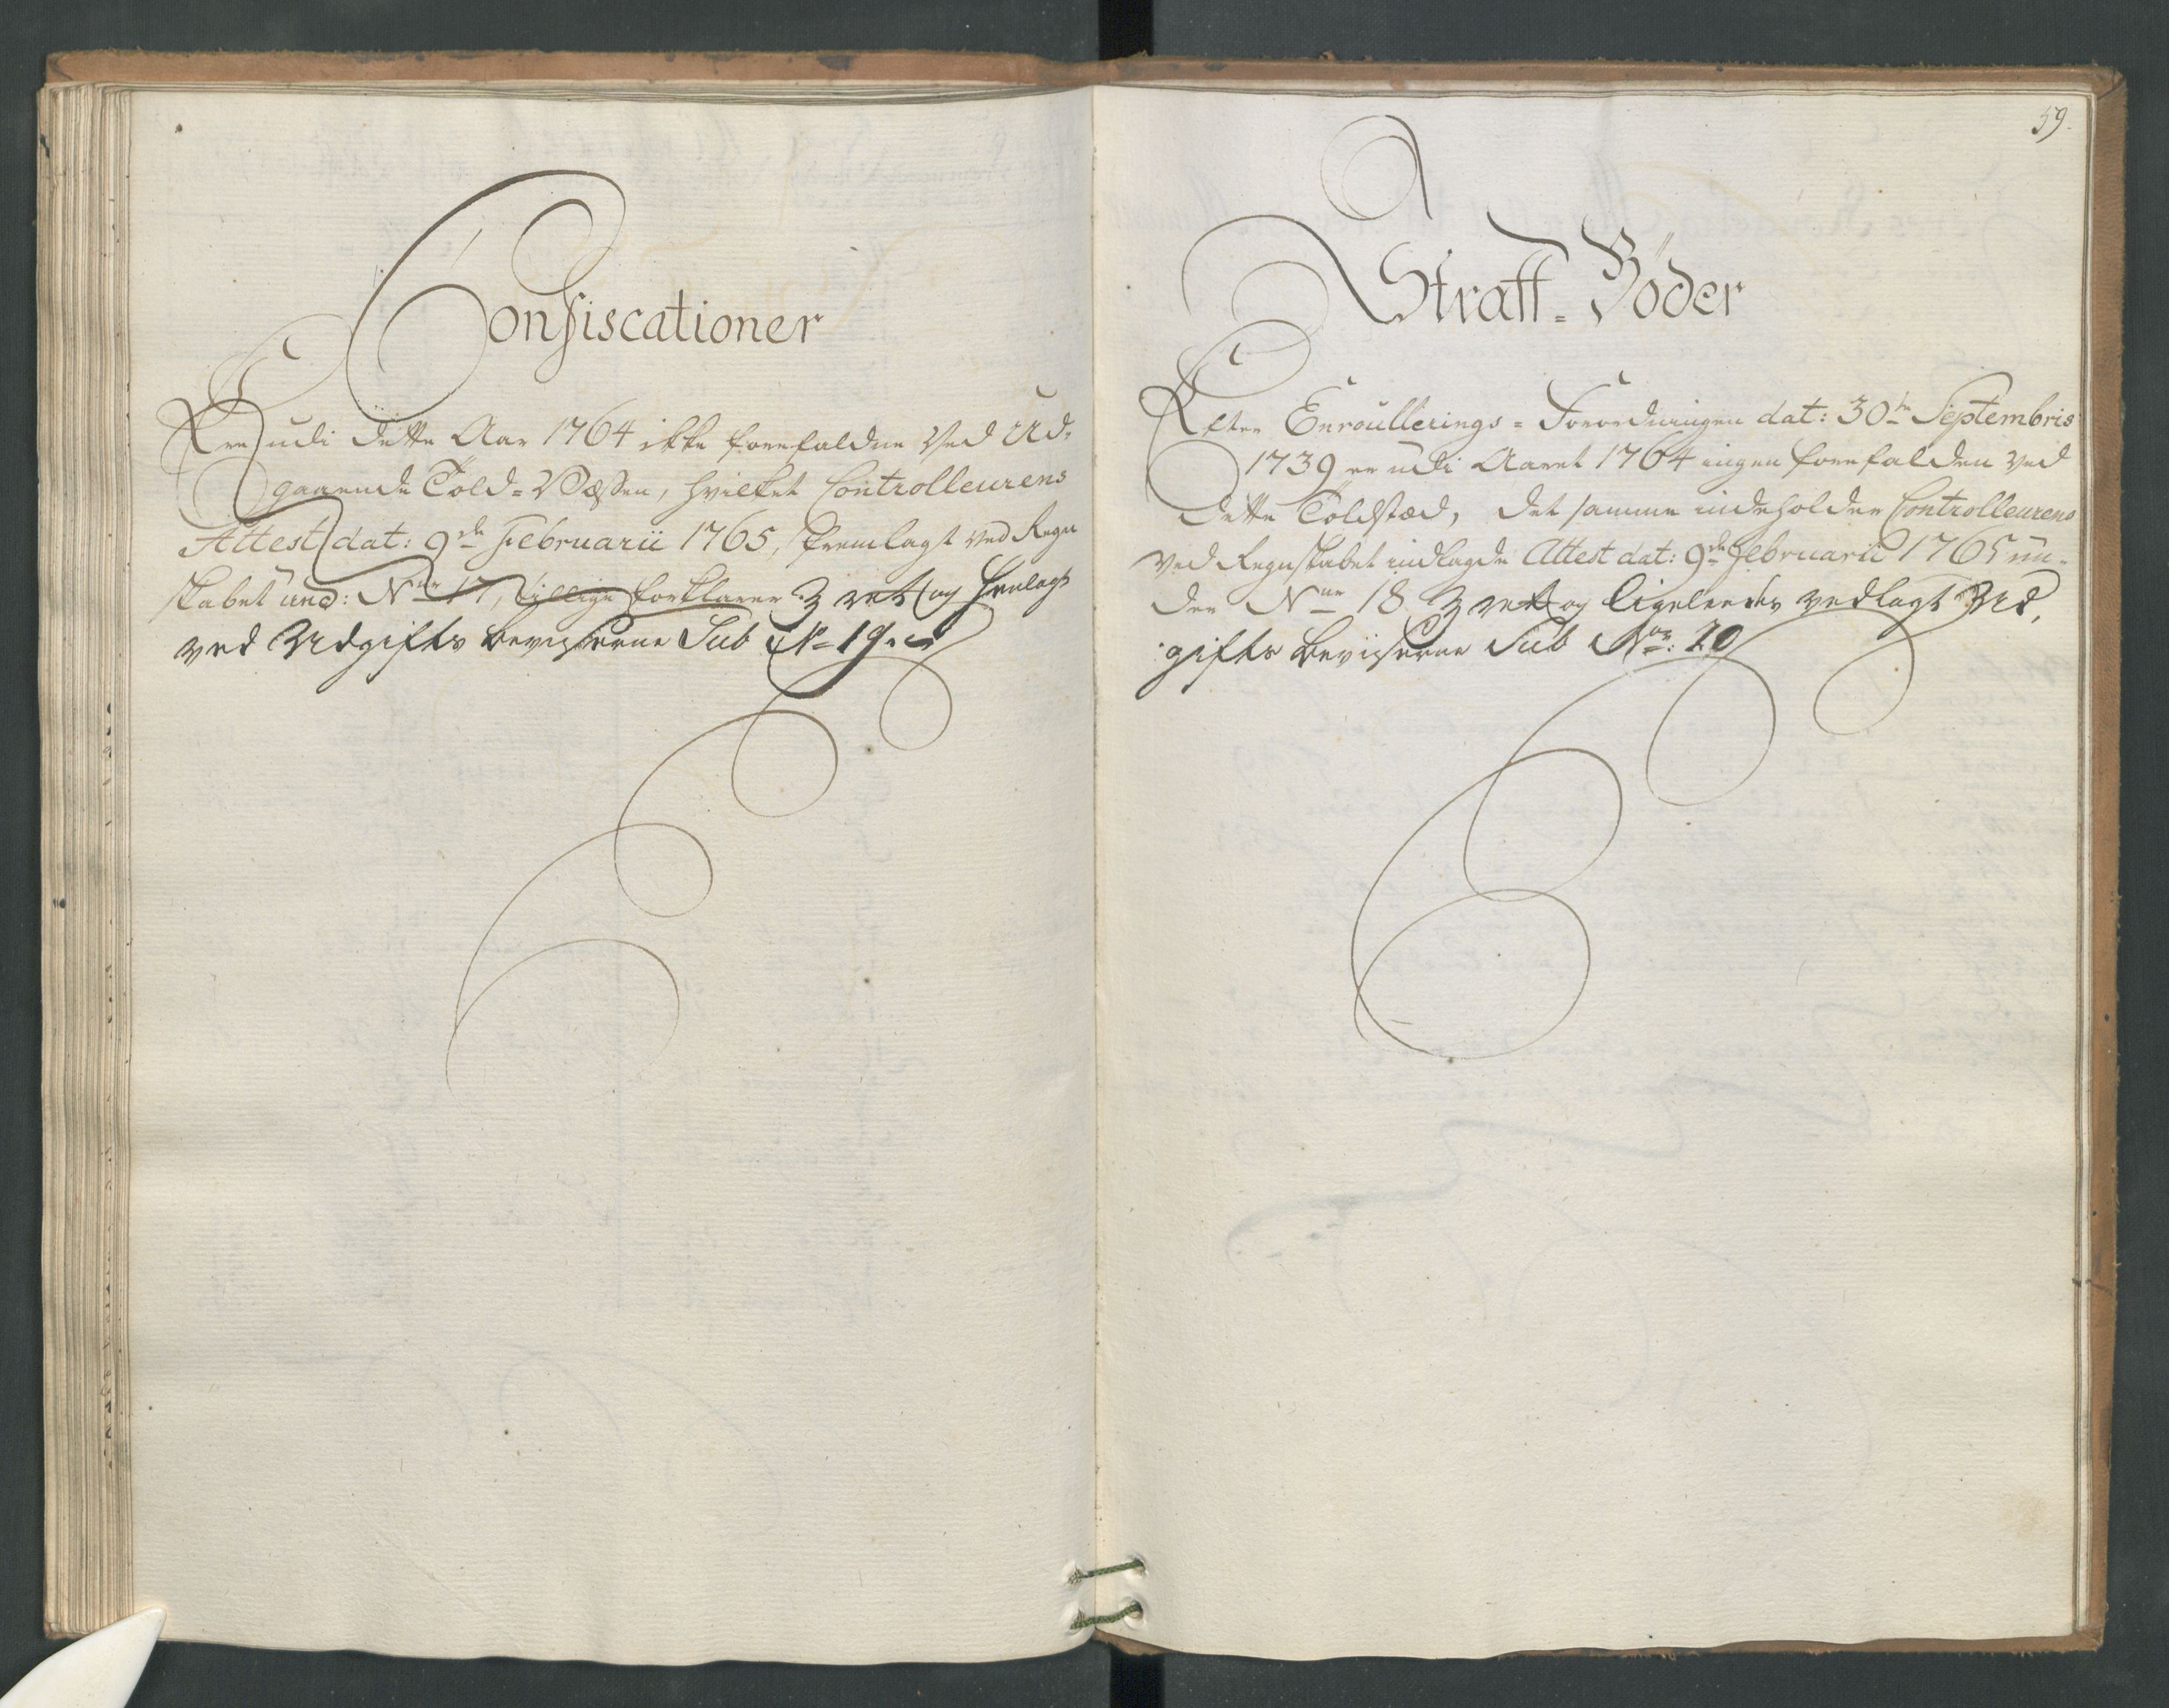 Confiscationer
Ere udi dette Aar 1764 ikke forefaldne ved Ud-
gaaende Told-Væssen, hvilket Controlleurens
Attest dat: 9de Februarii 1765, fremlagt ved Regn
skabet und: Nur 17, tillige forklarer og henlagt
ved Udgifts beviiserne Sub No 19.
59.
Straff-Böder
Efter Enroullerings-Forordningen dat: 30te Septembris
1739 er udi Aaret 1764 ingen forefalden ved
dette Toldstæd, det samme indeholder Controlleurens
ved Regnskabet indlagde Attest dat: 9de Februarii 1765 un-
der Nur 18 og ligeleedes vedlagt Ud,
gifts beviiserne Sub No: 20